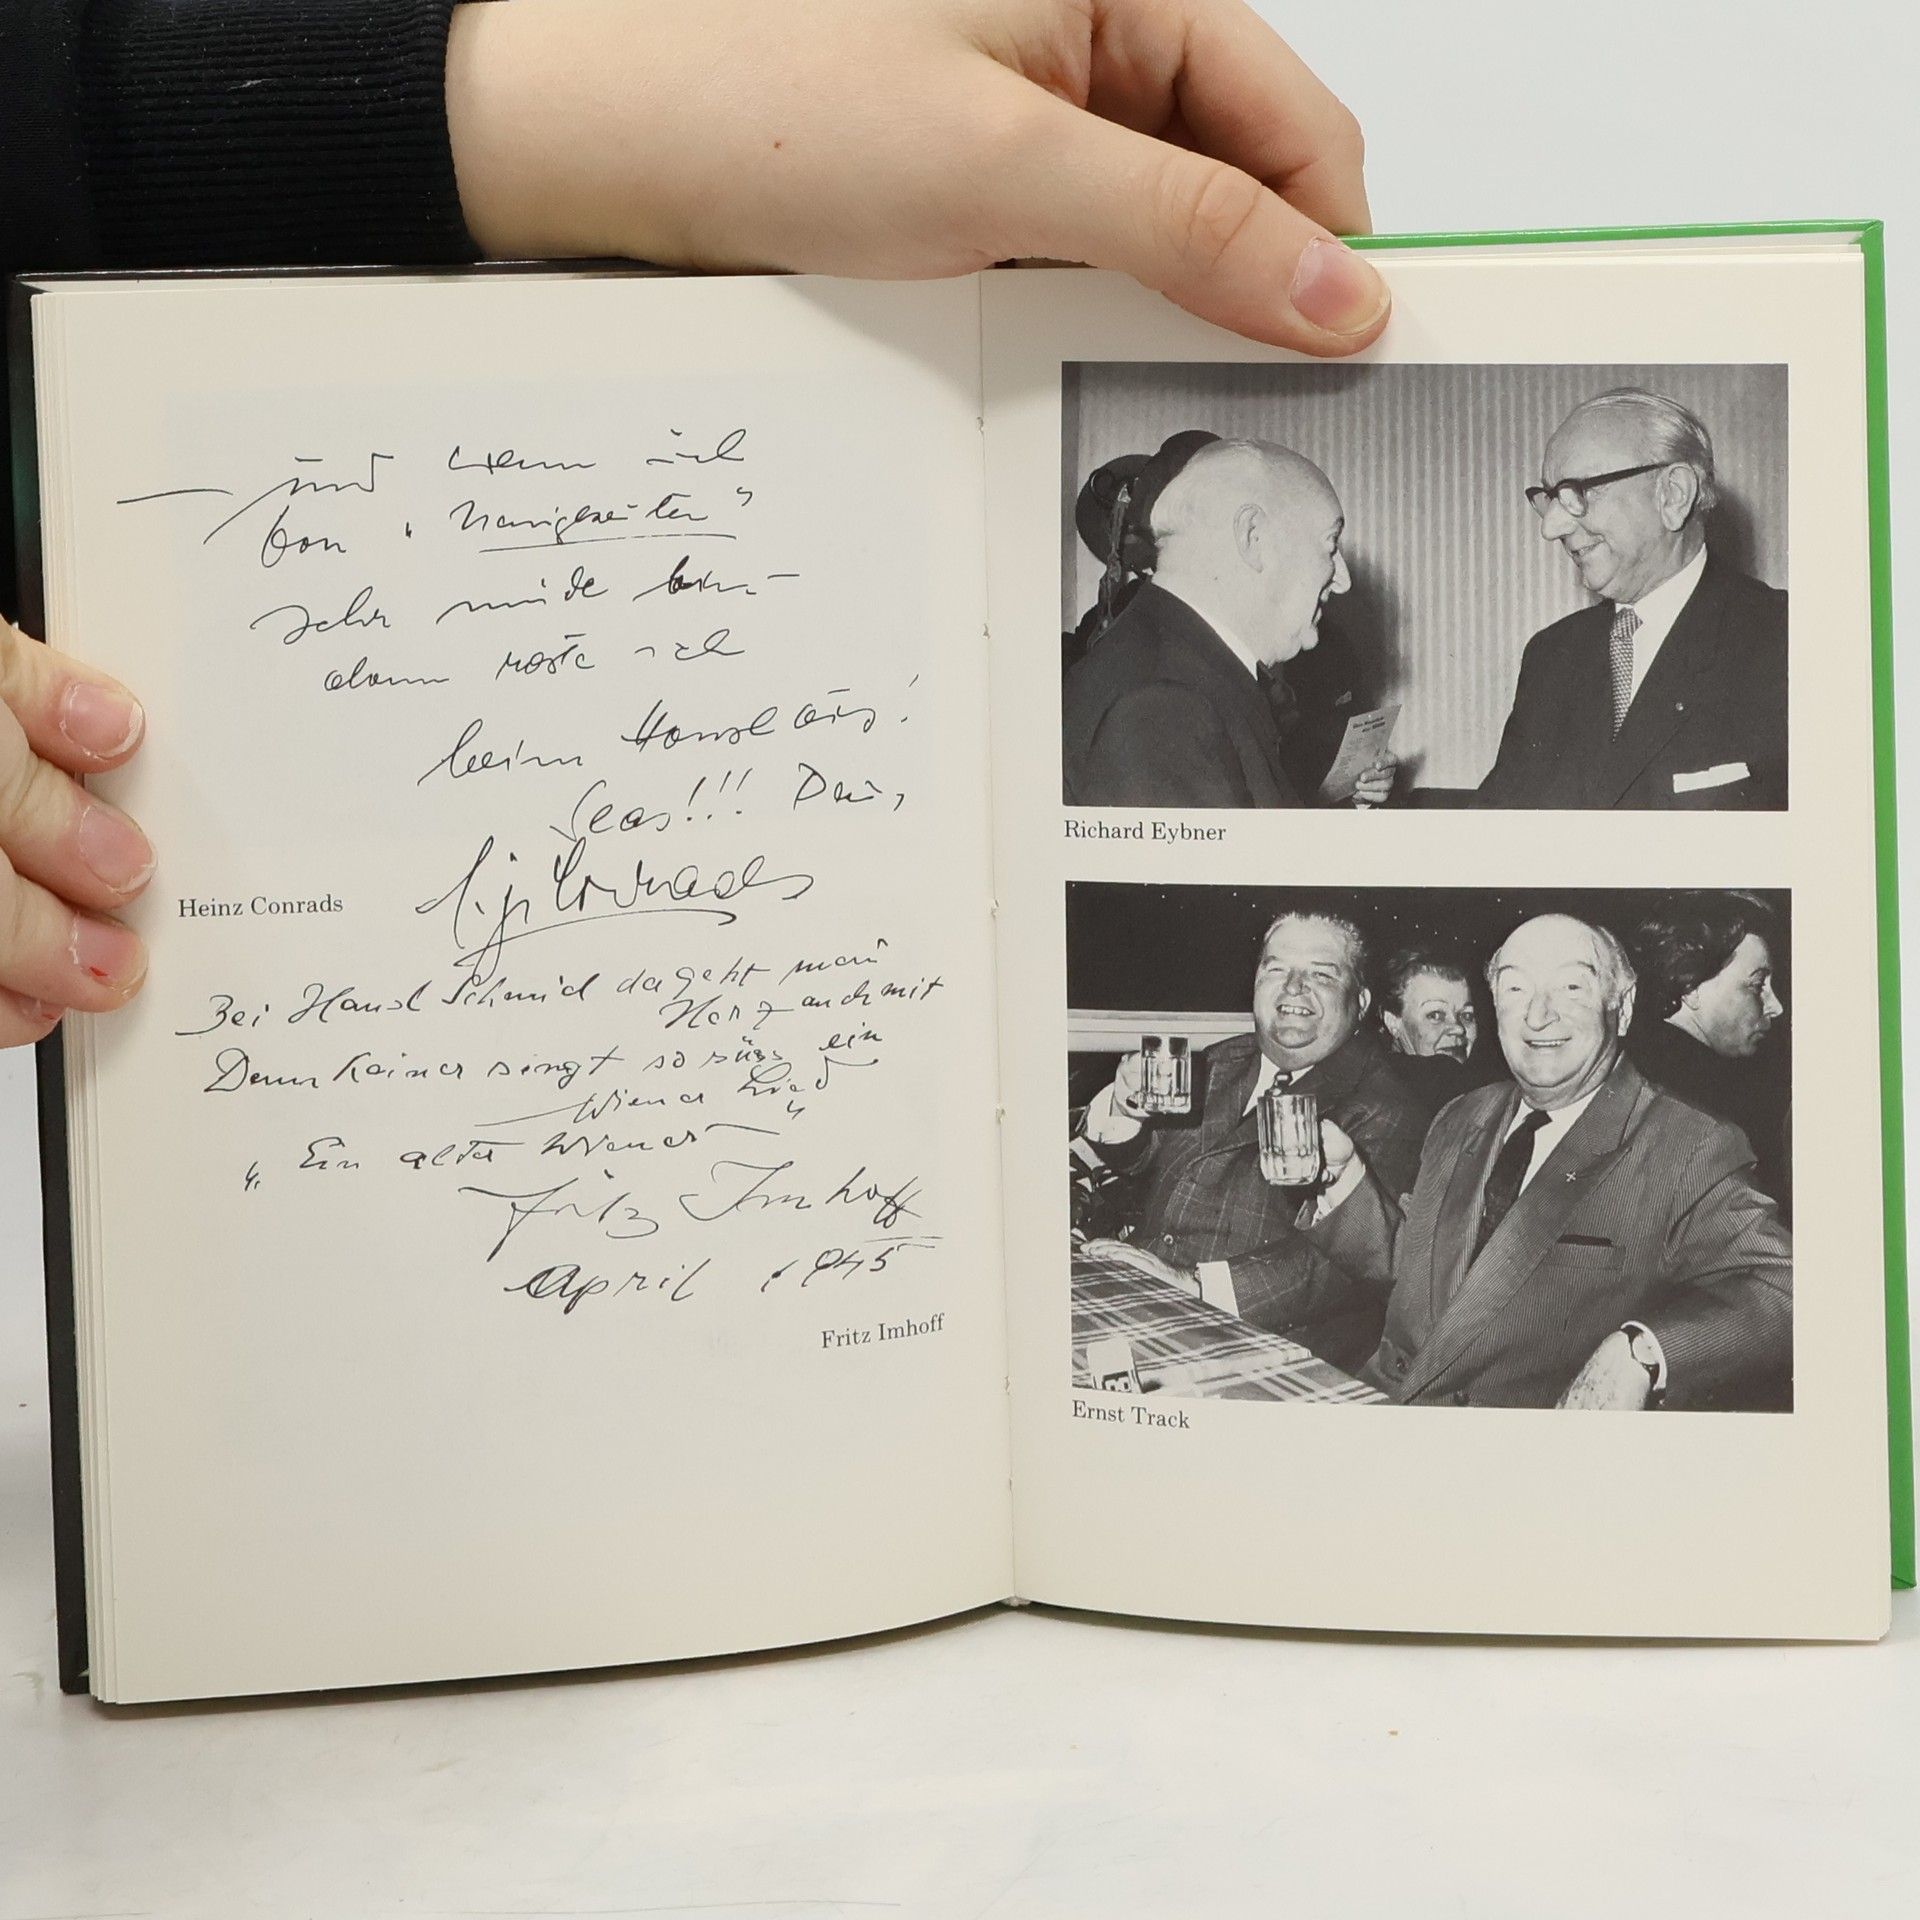 — und wenn ich
von „Neuigkeiten“
sehr müde bin —
dann raste ich
beim Hansl aus!
Seas!!! Dein,
Conrads
Heinz Conrads
Bei Hansl Schmid da geht man
Herz auch mit
Denn keiner singt so süss ein
Wiener Lied
„Ein alter Wiener“
Fritz Imhoff
April 1945
Fritz Imhoff
Richard Eybner
Ernst Track